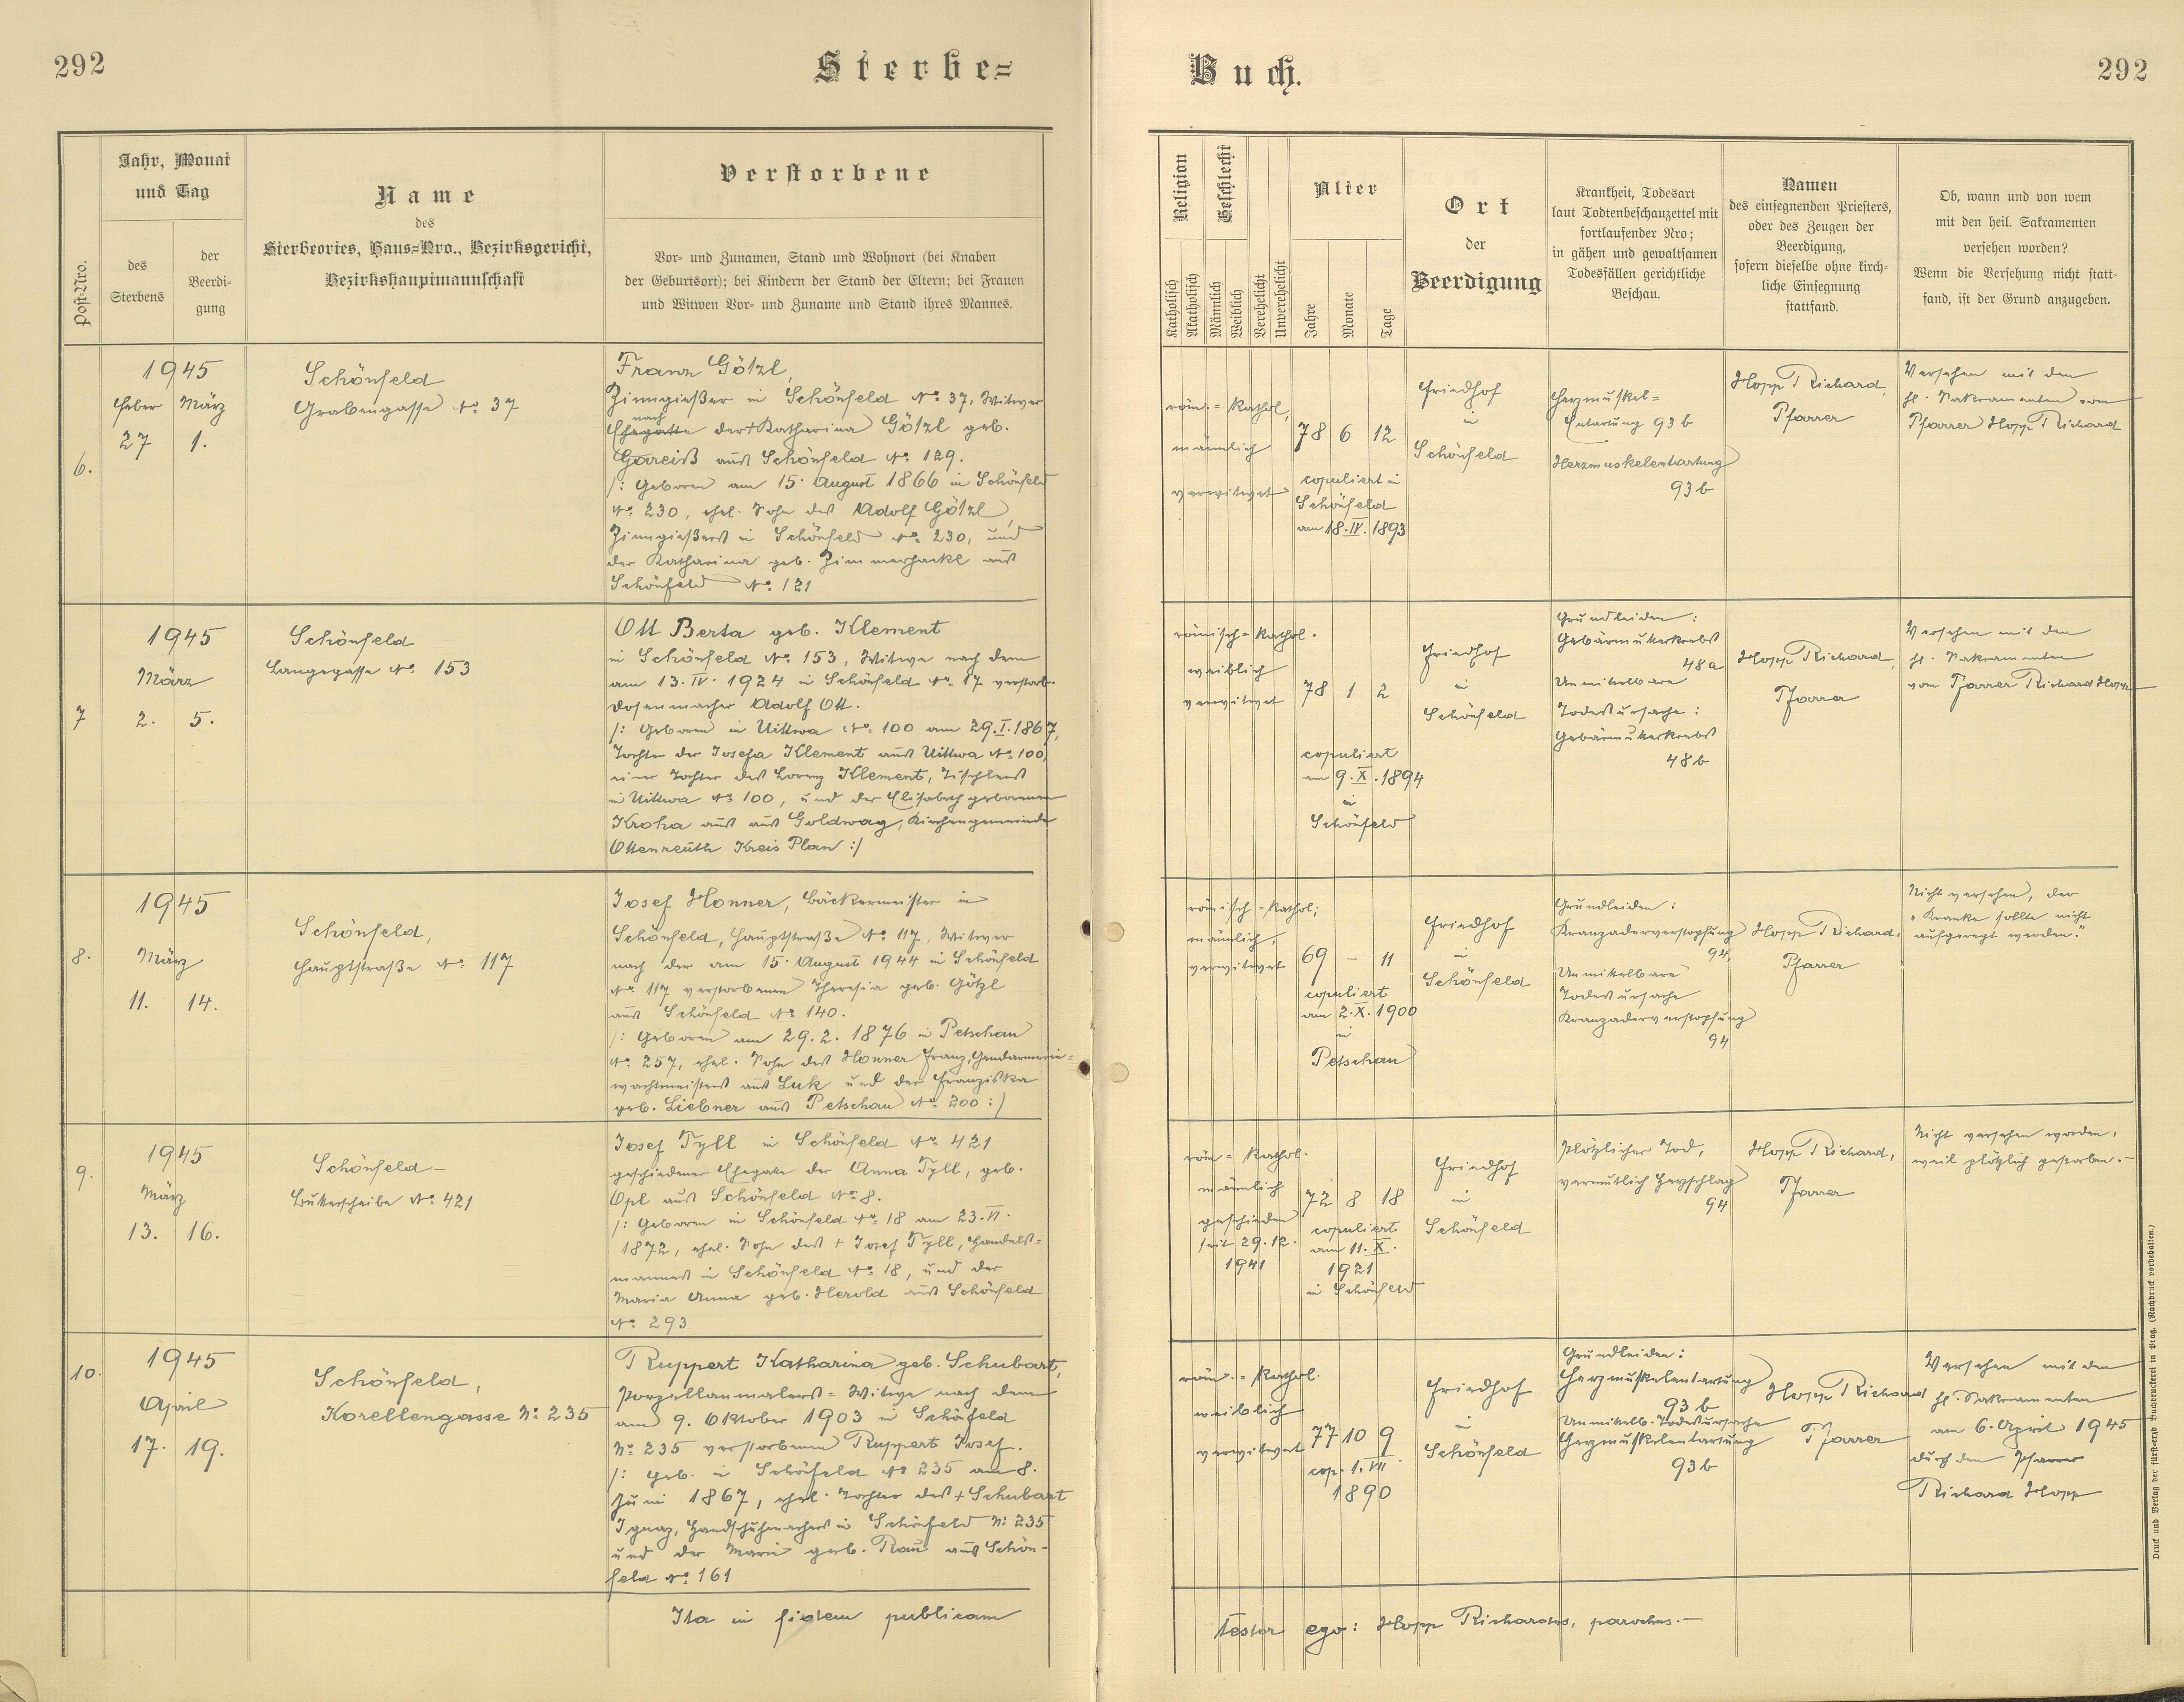 292
Sterbe=
Buch.
292
Post-Nro.
Jahr, Monat
und Tag
des
Sterbens
der
Beerdi-
gung
Name
des
Sterbeortes, Haus=Nro., Bezirksgericht,
Bezirkshauptmannschaft
Verstorbene
Vor- und Zunamen, Stand und Wohnort (bei Knaben
der Geburtsort); bei Kindern der Stand der Eltern; bei Frauen
und Witwen Vor- und Zuname und Stand ihres Mannes.
Religion
Katholisch
Akatholisch
Geschlecht
Männlich
Weiblich
Verehelicht
Unverehelicht
Alter
Jahre
Monate
Tage
Ort
der
Beerdigung
Krankheit, Todesart
laut Todtenbeschauzettel mit
fortlaufender Nro;
in gähen und gewaltsamen
Todesfällen gerichtliche
Beschau.
Namen
des einsegnenden Priesters,
oder des Zeugen der
Beerdigung,
sofern dieselbe ohne kirch-
liche Einsegnung
stattfand.
Ob, wann und von wem
mit den heil. Sakramenten
versehen worden?
Wenn die Versehung nicht statt-
fand, ist der Grund anzugeben.
6.
1945
Feber März
27 1.
Schönfeld
Grabengasse No. 37
Franz Götzl,
Zinngießer in Schönfeld No. 37, Witwer
nach
Ehegatte der + Katharina Götzl geb.
Gareiß aus Schönfeld No. 129.
/: Geboren am 15. August 1866 in Schönfeld
No. 230, ehel. Sohn des Adolf Götzl,
Zinngießers in Schönfeld No. 230, und
der Katharina geb. Zimmerhackl aus
Schönfeld No. 121
röm. = kathol,
männlich
verwitwet
78 6 12
copuliert in
Schönfeld
am 18. IV. 1893
Friedhof
in
Schönfeld
Herzmuskel=
Entartung 93 b
Herzmuskelentartung
93 b
Hopp Richard,
Pfarrer
Versehen mit den
hl. Sakramenten vom
Pfarrer Hopp Richard
7
1945
März
2. 5.
Schönfeld
Langegasse No. 153
Ott Berta geb. Klement
in Schönfeld No. 153, Witwe nach dem
am 13. IV. 1924 in Schönfeld No. 17 verstorb.
Dosenmacher Adolf Ott.
/: Geboren in Uittwa No. 100 am 29. I. 1867,
Tochter der Josefa Klement aus Uittwa No. 100,
einer Tochter des Lorenz Klement, Tischlers
in Uittwa No. 100, und der Elisabeth geborenen
Kroha aus aus Goldwag, Kirchengemeinde
Ottenreuth Kreis Plan :/
römisch = kathol.
weiblich
verwitwet
78 1 2
copuliert
am 9. X. 1894
in
Schönfeld
Friedhof
in
Schönfeld
Grundleiden :
Gebärmutterkrebs
48 a
Unmittelbare
Todesursache :
Gebärmutterkrebs
48 b
Hopp Richard,
Pfarrer
Versehen mit den
hl. Sakramenten
vom Pfarrer Richard Hopp
8.
1945
März
11. 14.
Schönfeld,
Hauptstraße No. 117
Josef Honner, Bäckermeister in
Schönfeld, Hauptstraße No. 117, Witwer
nach der am 15. August 1944 in Schönfeld
No. 117 verstorbenen Theresia geb. Götzl
aus Schönfeld No. 140.
/: Geboren am 29. 2. 1876 in Petschau
No. 257, ehel. Sohn des Honner Franz, Gendarmerie=
wachtmeisters aus Luk und der Franziska
geb. Liebner aus Petschau No. 200 :/
römisch = kathol;
männlich,
verwitwet
69 - 11
copuliert
am 2. X. 1900
in
Petschau
Friedhof
in
Schönfeld
Grundleiden :
Kranzaderverstopfung
94,
Unmittelbare
Todesursache
Kranzaderverstopfung
94
Hopp Richard,
Pfarrer
Nicht versehen, der
„Kranke sollte nicht
aufgeregt werden."
9.
1945
März
13. 16.
Schönfeld -
Butterscheibe No. 421
Josef Tyll in Schönfeld No. 421
geschiedener Ehegatte der Anna Tyll, geb.
Opl aus Schönfeld No. 8.
/: Geboren in Schönfeld No. 18 am 23. VI.
1872, ehel. Sohn des + Josef Tyll, Handels=
mannes in Schönfeld No. 18, und der
Maria Anna geb. Herold aus Schönfeld
No. 293
röm = kathol.
männlich
geschieden
seit 29. 12.
1941
72 8 18
copuliert
am 11. X.
1921
in Schönfeld
Friedhof
in
Schönfeld
Plötzlicher Tod,
vermutlich Herzschlag
94
Hopp Richard,
Pfarrer
Nicht versehen worden,
weil plötzlich gestorben.-
10.
1945
April
17. 19.
Schönfeld,
Korellengasse N: 235
Ruppert Katharina geb. Schubart,
Porzellanmalers = Witwe nach dem
am 9. Oktober 1903 in Schönfeld
N: 235 verstorbenen Ruppert Josef.
/: geb. in Schönfeld No 235 am 8.
Juni 1867, ehel. Tochter des + Schubart
Ignaz, Handschuhmachers in Schönfeld N: 235
und der Marie geb. Rau aus Schön-
feld No. 161
röm. = kathol.
weiblich
verwitwet
77 10 9
cop. 1. VII.
1890
Friedhof
in
Schönfeld
Grundleiden :
Herzmuskelentartung
93 b
Unmittelb. Todesursache
Herzmuskelentartung
93 b
Hopp Richard
Pfarrer
Versehen mit den
hl. Sakramenten
am 6. April 1945
durch den Pfarrer
Richard Hopp
Ita in fidem publicam
testor ego: Hopp Richardus, parochus.-
Druck und Verlag der fürst-erzb Buchdruckerei in Prag. (Nachdruck vorbehalten.)